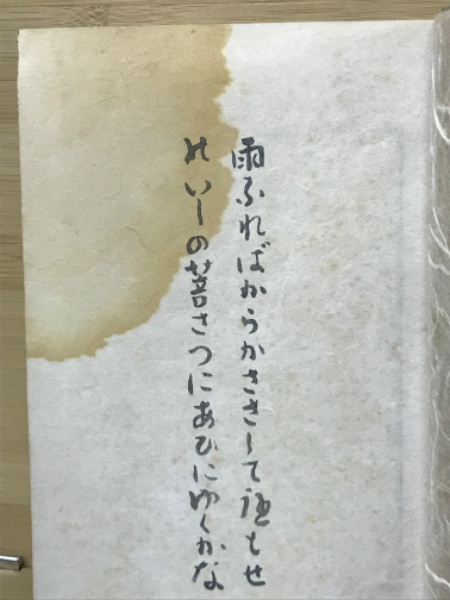 雨ふればからかささしてもせ
ぬいしの菩さつにあひにゆくかな